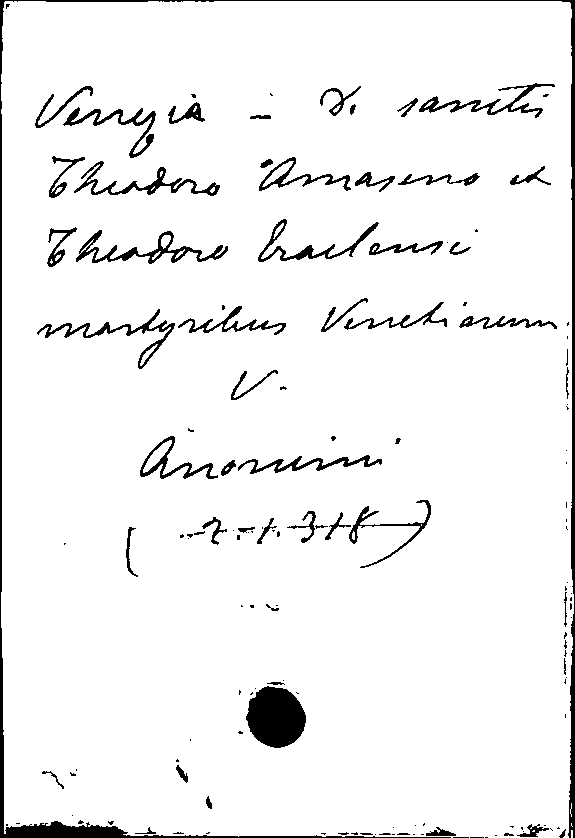 Venezia - D. sanctis
Theodoro Amaseno et
Theodoro Eraclensi
martyribus Venetiarum
V.
Anonimi
(2.1.318)